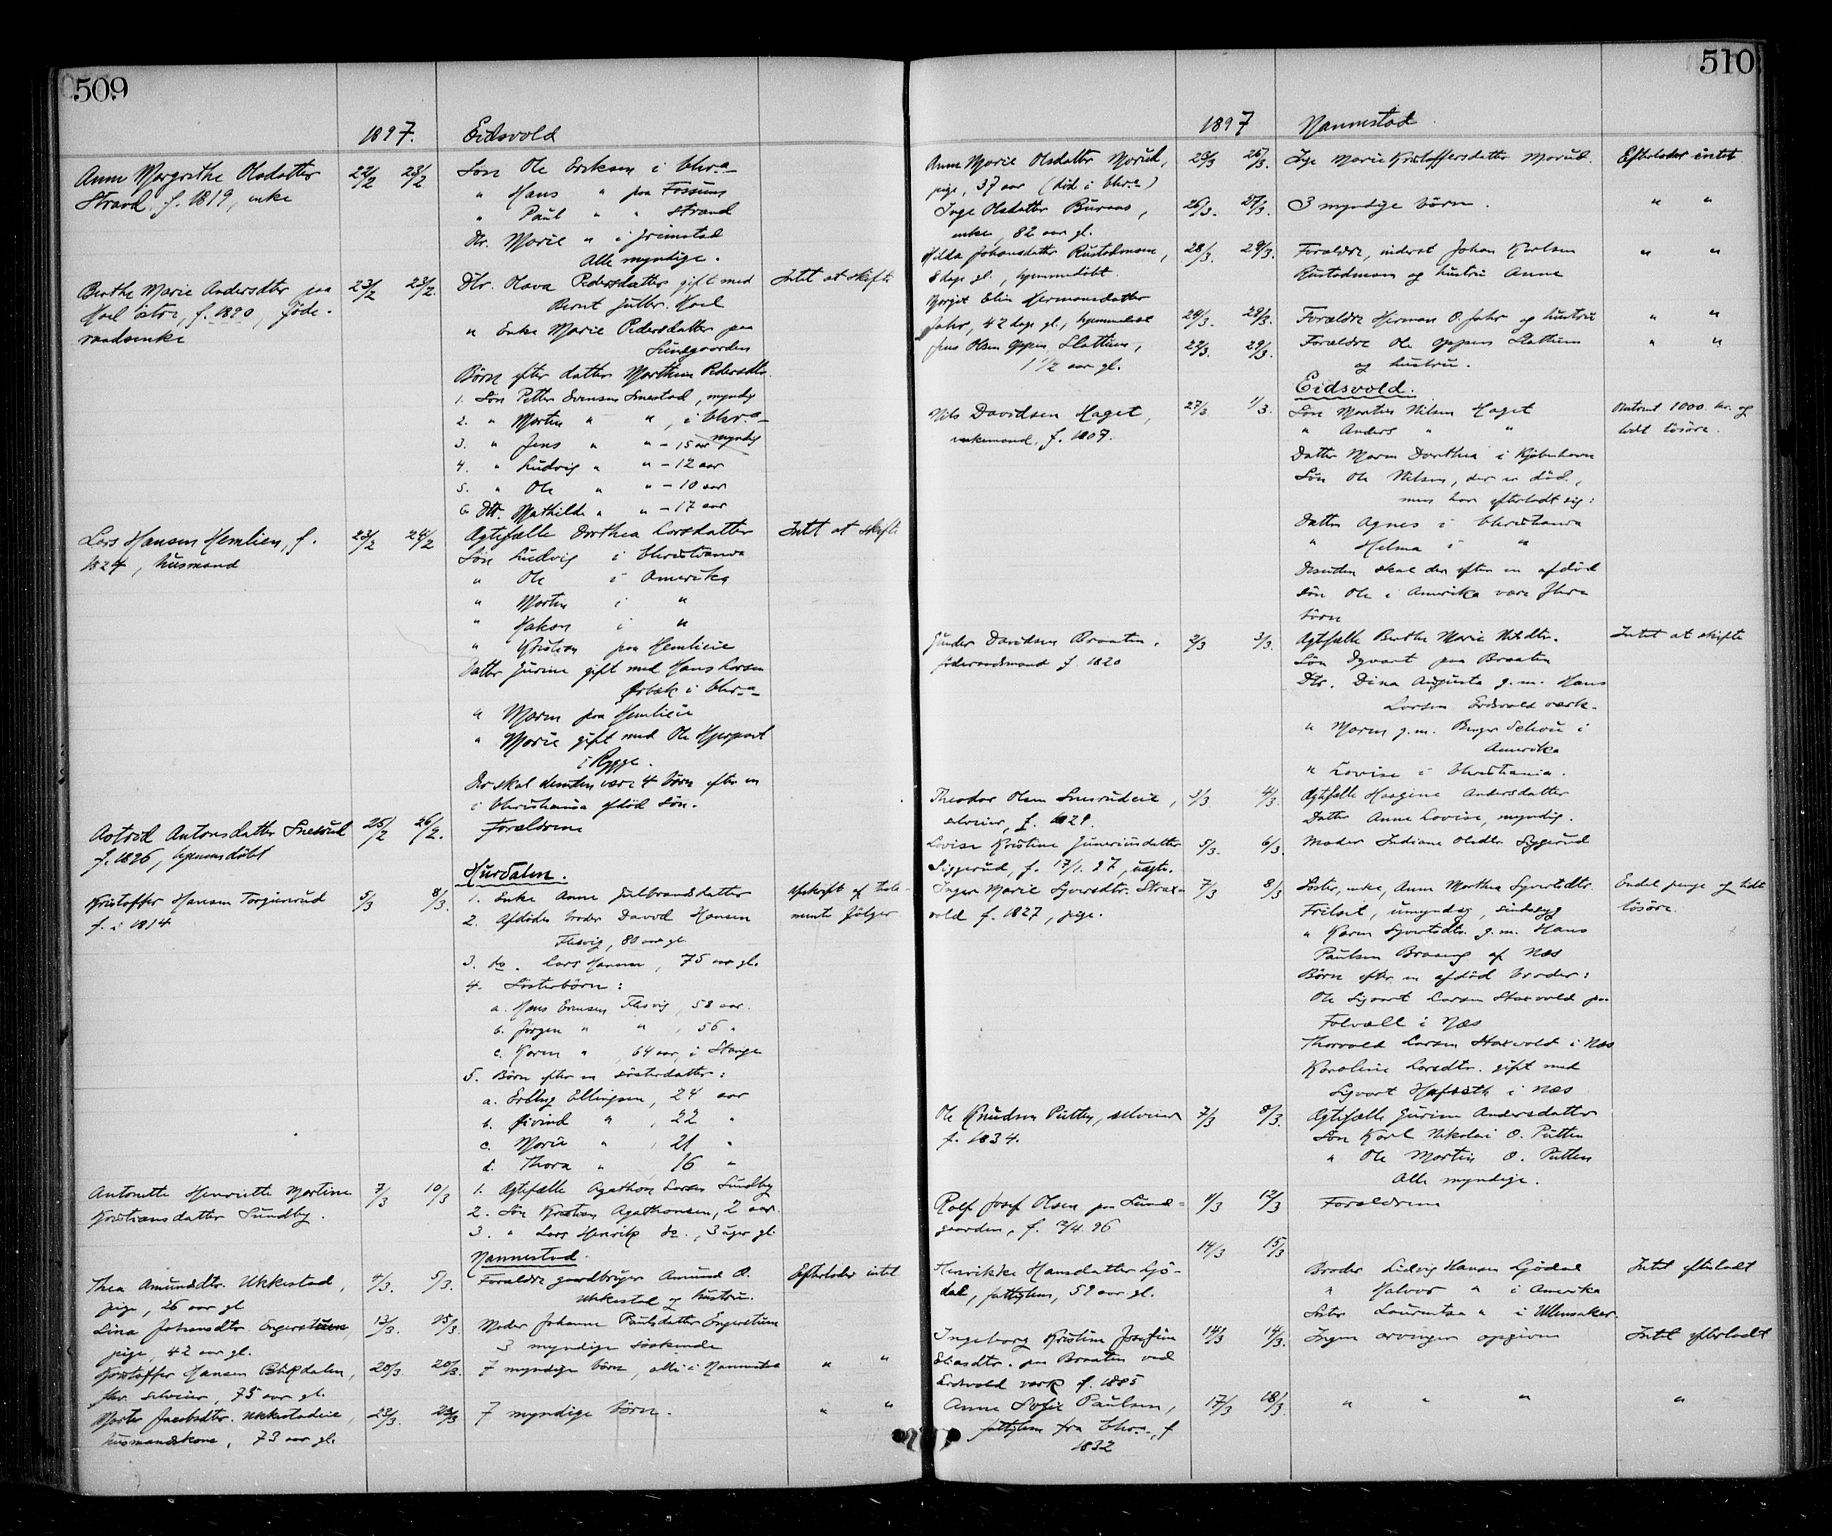 509
1897. Eidsvold
Anne Mergrethe Olsdatter 22/2 23/2 Søn Ole Eriksen i Chr.a
Strand f. 1819, enke
" Hans " paa Fossums
" Paul " " Strand
Dtr. Marie " i Grimstad
Alle myndige.
Berthe Marie Andersdtr paa 23/2 23/2. Dtr. Olava Pedersdatter gift med Intet at skifte
Hoel östre, f. 1820, Föde-
raadsenke
Bernt Gulbr. Hoel
" Enke Marie Pedersdatter paa
Lundgaarden
Börn efter datter Marthea Pedersdtr.
1. Sön Petter Svensen Smestad, myndig
2. " Martin " ", i Chr.a myndig
3. " Jens " " - 15 aar
4. " Ludvig " " - 12 aar
5. " Ole " " - 10 aar
6. Dtr. Mathilde " " - 17 aar
Lars Hansen Hemlien, f. 23/2 24/2 Ægtefælle Dorthea Larsdatter Intet at skifte
1824, husmand
Søn Ludvig i Christiania
" Ole i Amerika
" Martin i "
" Hakon i "
" Kristian paa Hemlieie
Datter Jurine gift med Hans Larsen
i Chr.a
" Maren paa Hemlieie
" Marie gift med Ole
i Rygge.
Der skal desuden være 4 börn efter en
i Christiania afdöd sön.
Astrid Antonsdatter Snesrud 25/2 26/2. Forældrene
f. 1896, hjemmedöbt
Hurdalen.
Kristoffer Hansen Torgunrud 5/3 8/3. 1. Enke Anne Gulbrandsdatter Afskrift af testa-
f. i 1814
2. Afdödes broder David Hansen ment fölger
Flesvig, 80 aar gl.
3. do. Lars Hansen, 75 aar gl.
4. Sösterbörn:
a. Hans Evensen Flesvig, 58 aar.
b. Jörgen " ", 56 "
c. Karen ", 64 aar, i Stange
5. Börn efter en sösterdatter:
a. Erling Ellingsen, 24 aar
b. Øivind ", 22 "
c. Marie ", 21 "
d. Thora ", 16 "
Antonette Henriette Martine 7/3 10/3 1. Ægtefælle Agathon Larsen Sundby
Kristiansdatter Sundby.
2. Sön Kristian Agathonsen, 2 aar
3. " Lars Henrik do., 3 uger gl.
Nannestad.
Thea Amundsdtr. Ukkestad, 4/3. 5/3. Forældre gaardbruger Amund O. Efterlader intet
pige, 26 aar gl
Ukkestad og hustru.
Lina Johansdtr. Engerstuen, 13/3. 15/3. Moder Johanne Paulsdatter Engerstuen
pige, 42 aar gl.
3 myndige söskende
Kristoffer Hansen Blikdalen, 20/3. 20/3. 7 myndige börn, alle i Nannestad " "
fhv. selveier, 75 aar gl.
Marte Jacobsdtr. Ukkestadeie, 22/3. 23/3 7 myndige börn. " "
husmandskone, 73 aar gl.
510
1897 Nannestad.
Anne Marie Olsdatter Morud, 23/3 26/3. Pige Marie Kristoffersdatter Morud. Efterlader intet
pige, 37 aar (död i Chr.a)
Inge Olsdatter Buraas, 26/3. 27/3. 3 myndige börn. " "
enke, 82 aar gl.
Hilda Johansdatter Rustadmoen, 28/3. 29/3. Forældre, inderst Johan Karlsen " "
8 dage gl., hjemmedöbt.
Rustadmoen og hustru Anne
Margit Elin Hermansdatter
Jahr, 42 dage gl., hjemmedöbt 24/3. 29/3. Forældre Herman O. Jahr og hustru " "
Jens Olsen Oppen Slattum, 22/3. 29/3. Forældre Ole Oppen Slattum " "
1 1/2 aar gl.
og hustru.
Eidsvold.
Nils Davidsen Haget, 27/3 1/3. Søn Martin Nilsen Haget Omtrent 1000 kr. og
enkemand, f. 1807.
" Anders " " lidt lösöre.
Datter Maren Dorthea i Kjöbenhavn
Søn Ole Nilsen, der er död,
men har efterladt sig:
Datter Agnes i Christiania
" Helma i "
Desuden skal der efter en afdöd
sön Ole i Amerika være flere
börn
Gunder Davidsen Braaten, 2/3 3/3. Ægtefælle Berthe Marie Nilsdtr. Intet at skifte
föderaadsmand f. 1820
Søn Syvert paa Braaten
Dtr. Dina Augusta g.m. Hans
Larsen Eidsvold værk.
" Maren g.m. Birger Schou i
Amerika
" Lovise i Christiania.
Theodor Olsen Snesrudeie, 3/3 4/3. Ægtefælle Haagine Andersdatter
selveier, f. 1829.
Datter Anne Lovise, myndig.
Lovise Kristine Gunneriusdatter 5/3. 6/3. Moder Indiane Olsdtr Syggerud
Siggerud, f. 17/1. 97, uægte.
Inger Marie Syversdtr. Stax- 7/3 8/3 Söster, enke, Anne Marthea Syvertsdtr. Endel penge og lidt
vold f. 1827, pige.
Frilset, umyndig, sindssyg lösöre.
" Karen Syvertsdtr. g.m. Hans
Paulsen Braangs af Næs
Börn efter en afdöd broder:
Ole Sigvart Larsen Staxvold paa
Folvall i Næs
Thorvald Larsen Staxvold i Næs
Karoline Larsdtr. gift med
Sigvart Hafseth i Næs
Ole Knudsen Putten, selveier 7/3 8/3. Ægtefælle Gurine Andersdatter
f. 1834.
Søn Karl Nikolai O. Putten
" Ole Martin O. Putten
Alle myndige.
Rolf Josef Olsen paa Lund- 9/3 12/3 Forældrene
gaarden, f. 2/4. 96
14/3 15/3
Henrikke Hansdatter Gjö- Broder Ludvig Hansen Gjödal Intet efterladt
dal, fattiglem, 59 aar gl.
" Halvor " i Amerika
Söster Laurentse " i Ullensaker.
Ingeborg Kristine Josefine 14/3 14/3. Ingen arvinger opgiven Intet efterladt
Eliasdtr. paa Braaten ved
Eidsvold værk f. 1885
Anne Sofie Paulsen, 17/3 18/3. " " " "
fattiglem fra Chr.a, f
1832